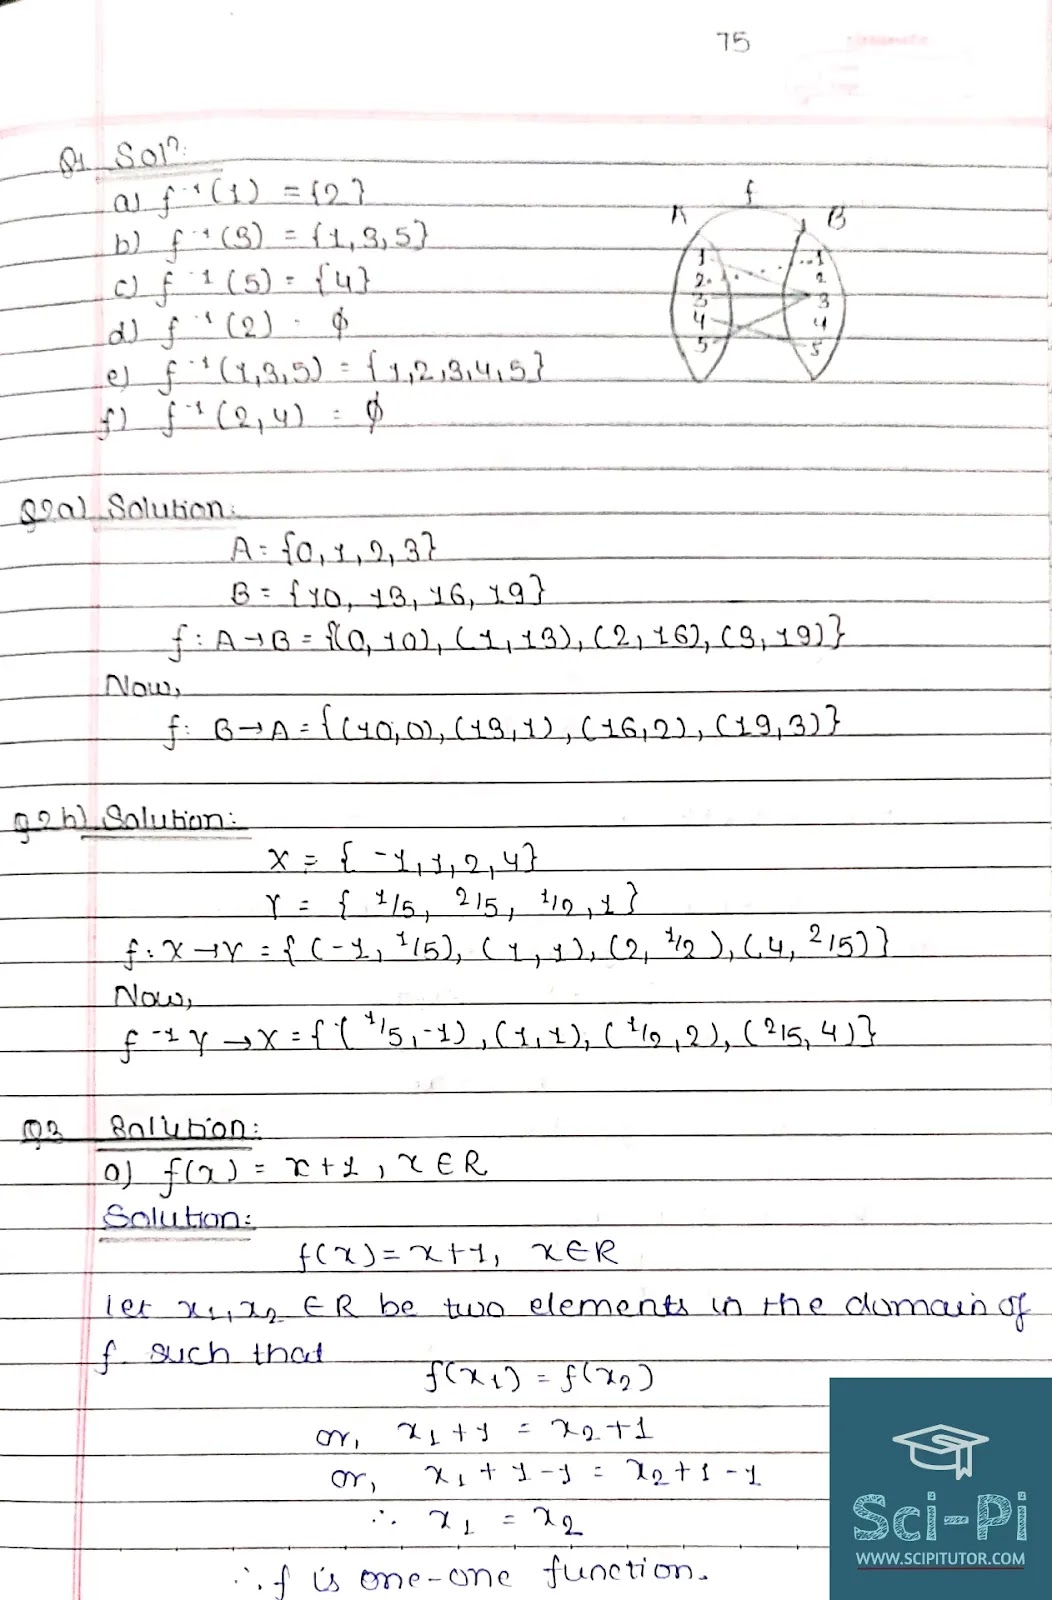 75
Q1 Solⁿ:
a) f⁻¹(1) = {2}
b) f⁻¹(3) = {1,3,5}
c) f⁻¹(5) = {4}
d) f⁻¹(2) = ϕ
e) f⁻¹(1,3,5) = {1,2,3,4,5}
f) f⁻¹(2,4) = ϕ
f
A B
1 1
2 2
3 3
4 4
5 5
Q2a) Solution:
A = {0,1,2,3}
B = {10, 13, 16, 19}
f: A→B = {(0,10), (1,13), (2,16), (3,19)}
Now,
f: B→A = {(10,0), (13,1), (16,2), (19,3)}
Q2b) Solution:
X = {-1,1,2,4}
Y = {1/5, 2/5, 1/2, 1}
f: X→Y = {(-1, 1/5), (1,1), (2, 1/2), (4, 2/5)}
Now,
f⁻¹ Y→X = {(1/5,-1), (1,1), (1/2,2), (2/5,4)}
Q3 Solution:
a) f(x) = x+1, x∈R
Solution:
f(x) = x+1, x∈R
Let x₁, x₂ ∈R be two elements in the domain of
f such that
f(x₁) = f(x₂)
or, x₁+1 = x₂+1
or, x₁+1-1 = x₂+1-1
∴ x₁ = x₂
∴ f is one-one function.
Sci-Pi
WWW.SCIPITUTOR.COM